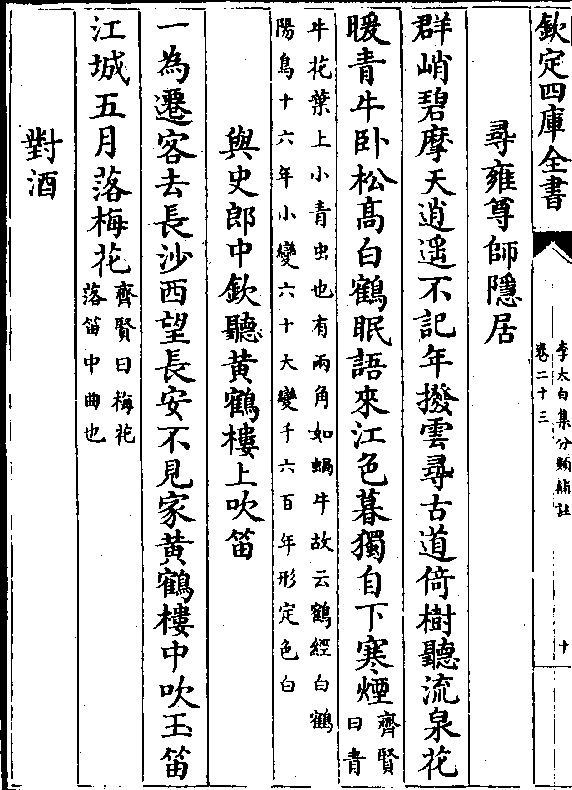 欽定四庫全書
李太白集分類補註
卷二十三
十
尋雍尊師隱居
群峭碧摩天逍遙不記年撥雲尋古道倚樹聽流泉花
暖青牛卧松髙白鶴眠語來江色暮獨自下寒煙
齊賢
曰青
牛花葉上小青虫也有兩角如蝸牛故云鶴經白鶴
陽鳥十六年小變六十大變千六百年形定色白
與史郎中欽聽黃鶴樓上吹笛
一為遷客去長沙西望長安不見家黃鶴樓中吹玉笛
江城五月落梅花
齊賢曰梅花
落笛中曲也
對酒